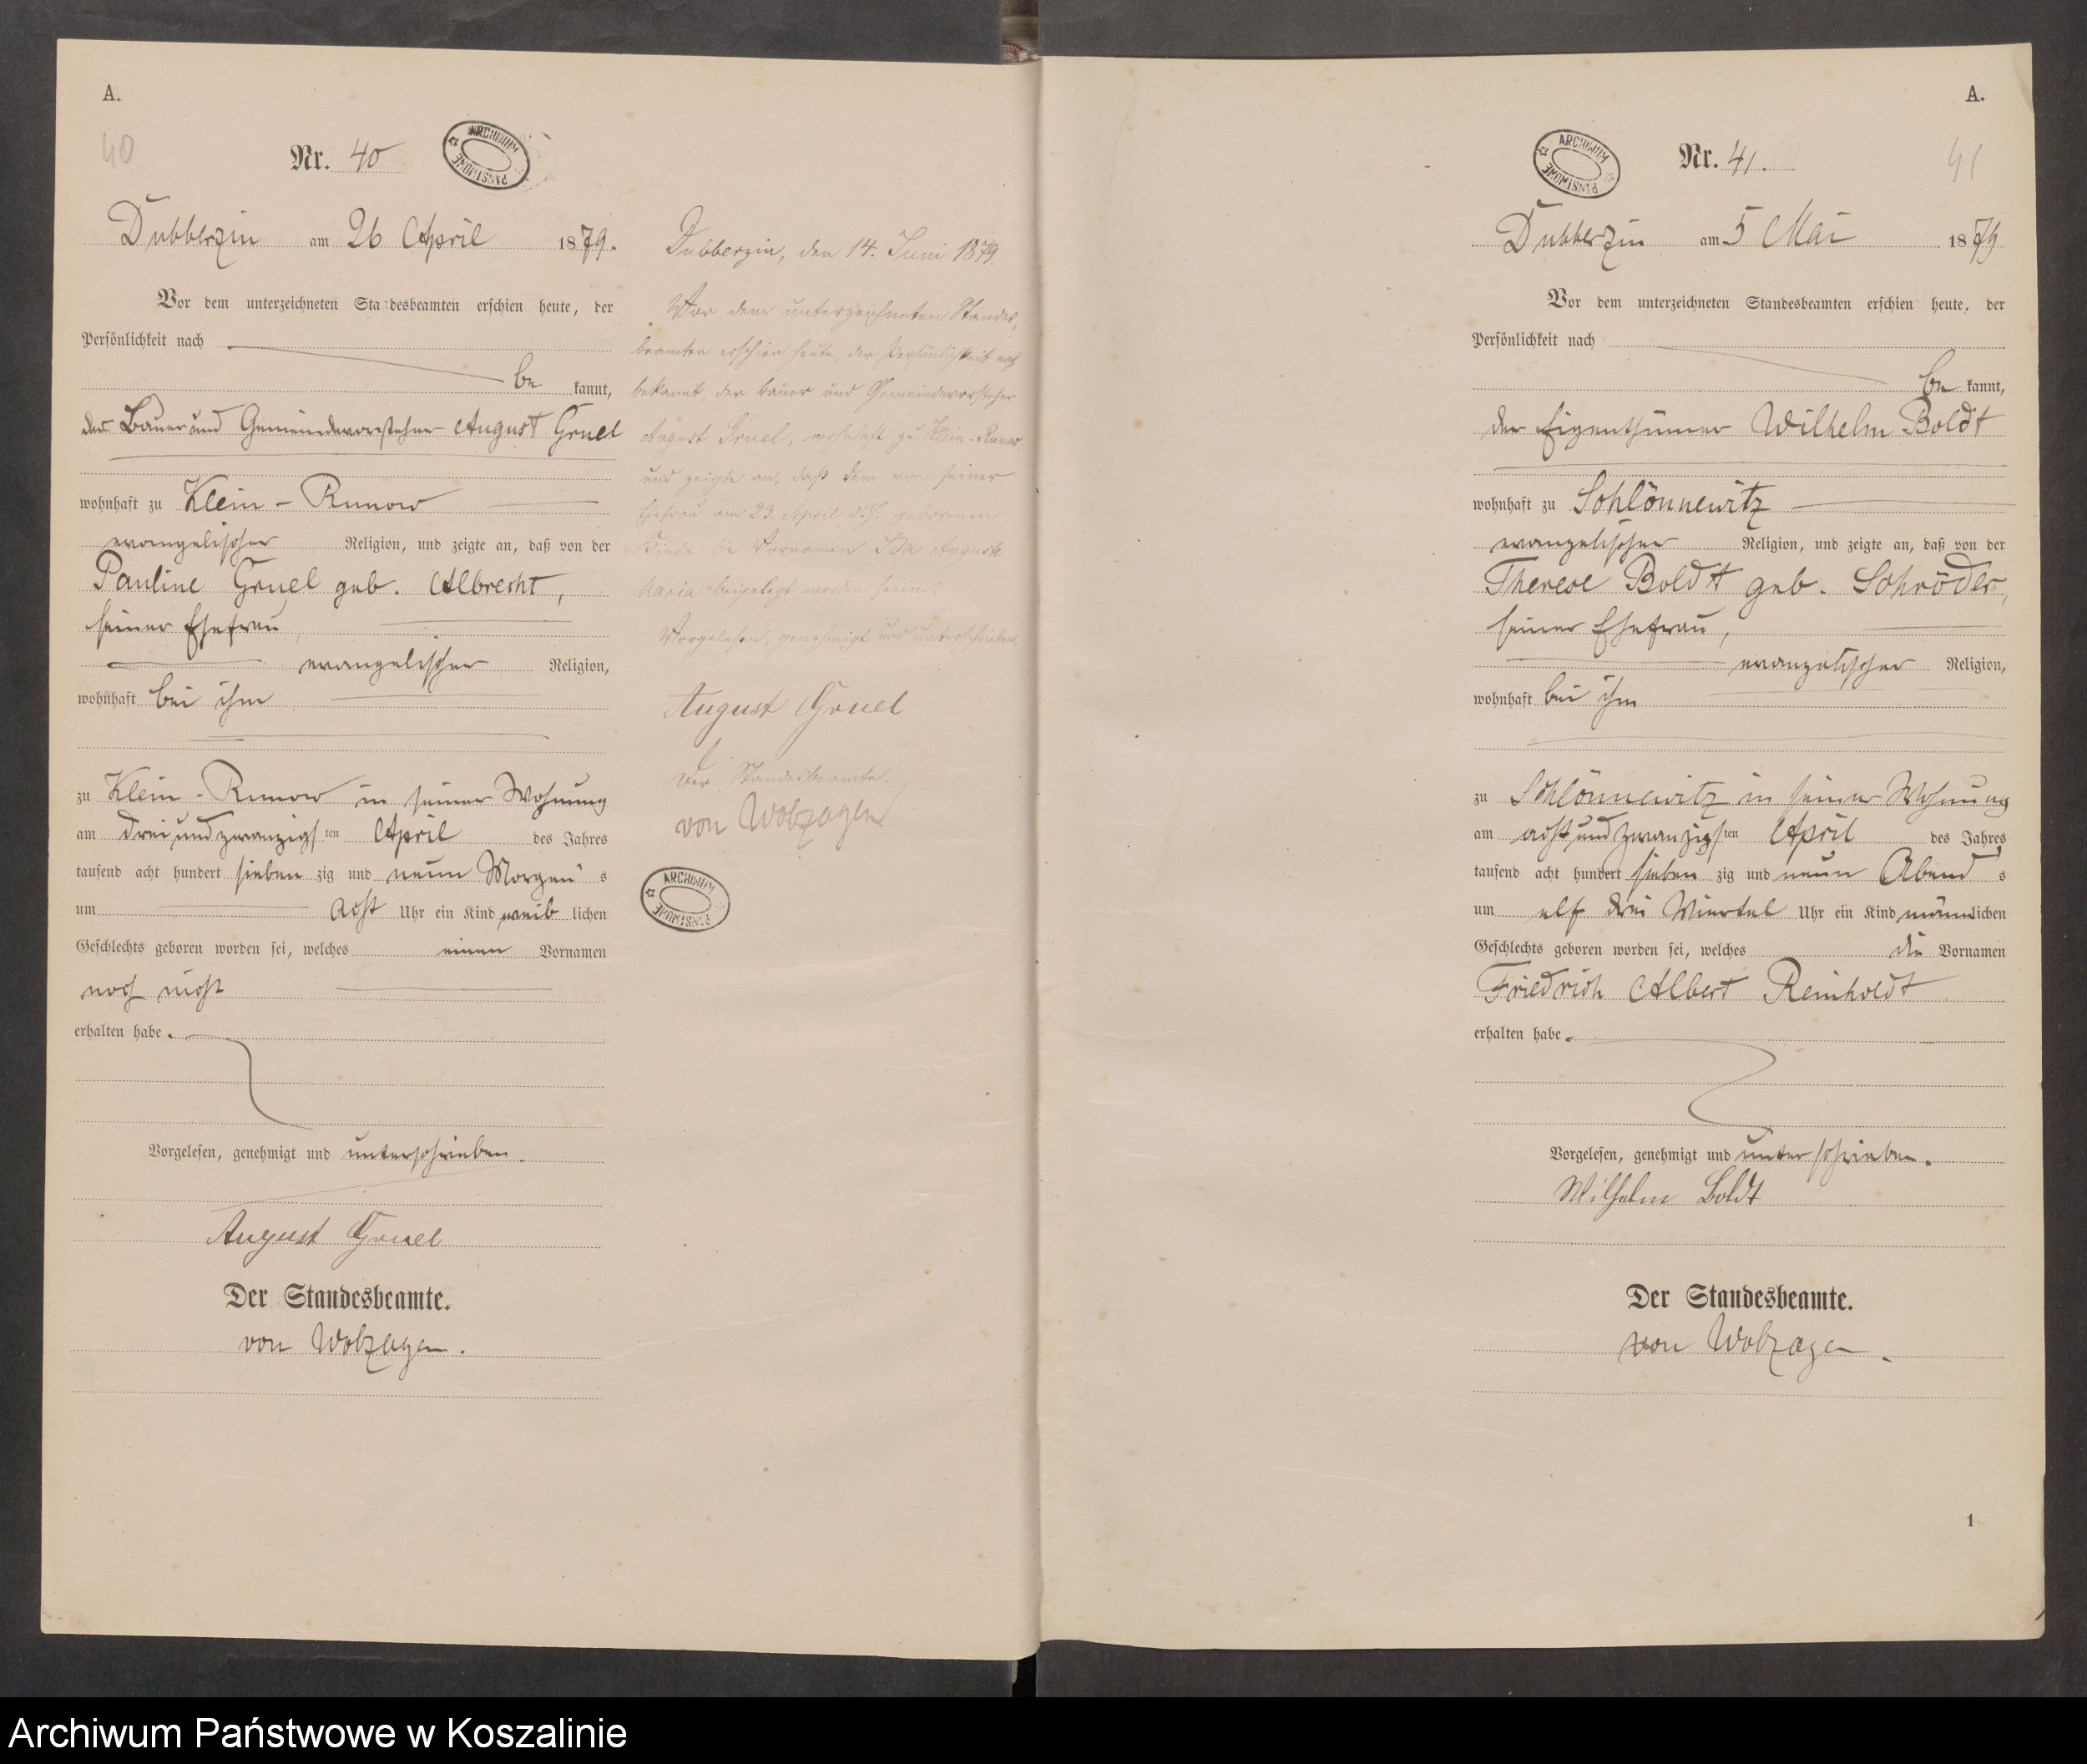 A.
40
Nr. 40
ARCHIWUM PAŃSTWOWE
Dubberzin am 26 April 1879.
Vor dem unterzeichneten Standesbeamten erschien heute, der
Persönlichkeit nach
be kannt,
der Bauer und Gemeindevorsteher August Gruel
wohnhaft zu Klein-Runow
evangelischer Religion, und zeigte an, daß von der
Pauline Gruel geb. Albrecht,
seiner Ehefrau,
evangelischer Religion,
wohnhaft bei ihm
zu Klein-Runow in seiner Wohnung
am drei und zwanzigsten April des Jahres
tausend acht hundert sieben zig und neun Morgens
um acht Uhr ein Kind weib lichen
Geschlechts geboren worden sei, welches einen Vornamen
noch nicht
erhalten habe.
Vorgelesen, genehmigt und unterschrieben.
August Gruel
Der Standesbeamte.
von Wobzagen.
Dubberzin, den 14. Juni 1879.
Vor dem unterzeichneten Standes-
beamten erschien heute, der Persönlichkeit nach
bekannt, der Bauer und Gemeindevorsteher
August Gruel, wohnhaft zu Klein-Runow
und zeigte an, daß dem von seiner
Ehefrau am 23. April d. J. geborenen
Kinde die Vornamen Auguste
Maria beigelegt worden seien.
Vorgelesen, genehmigt und unterschrieben.
August Gruel
Der Standesbeamte.
von Wobzagen
ARCHIWUM PAŃSTWOWE
A.
ARCHIWUM PAŃSTWOWE
Nr. 41.
41
Dubberzin am 5 Mai 1879
Vor dem unterzeichneten Standesbeamten erschien heute, der
Persönlichkeit nach
be kannt,
der Eigenthümer Wilhelm Boldt
wohnhaft zu Schlönnewitz
evangelischer Religion, und zeigte an, daß von der
Therese Boldt geb. Schröder,
seiner Ehefrau,
evangelischer Religion,
wohnhaft bei ihm
zu Schlönnewitz in seiner Wohnung
am acht und zwanzigsten April des Jahres
tausend acht hundert sieben zig und neun Abends
um elf drei Viertel Uhr ein Kind männlichen
Geschlechts geboren worden sei, welches die Vornamen
Friedrich Albert Reinholdt
erhalten habe.
Vorgelesen, genehmigt und unterschrieben.
Wilhelm Boldt
Der Standesbeamte.
von Wobzagen.
1
Archiwum Państwowe w Koszalinie